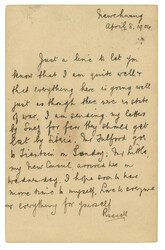 Newchwang
April 8, 1904
Just a line to let you
know that I am quite well &
that everything here is going well
just as though there were no state
of war. I am sending my letters
by Suez for fear they should get
lost by Siberia. Mr. Fulford goes
to Tientsin on Sunday. Mr. Little,
my new Consul arrived here on
Wednesday. I hope soon to have
more time to myself. Love to everyone
& everything for yourself